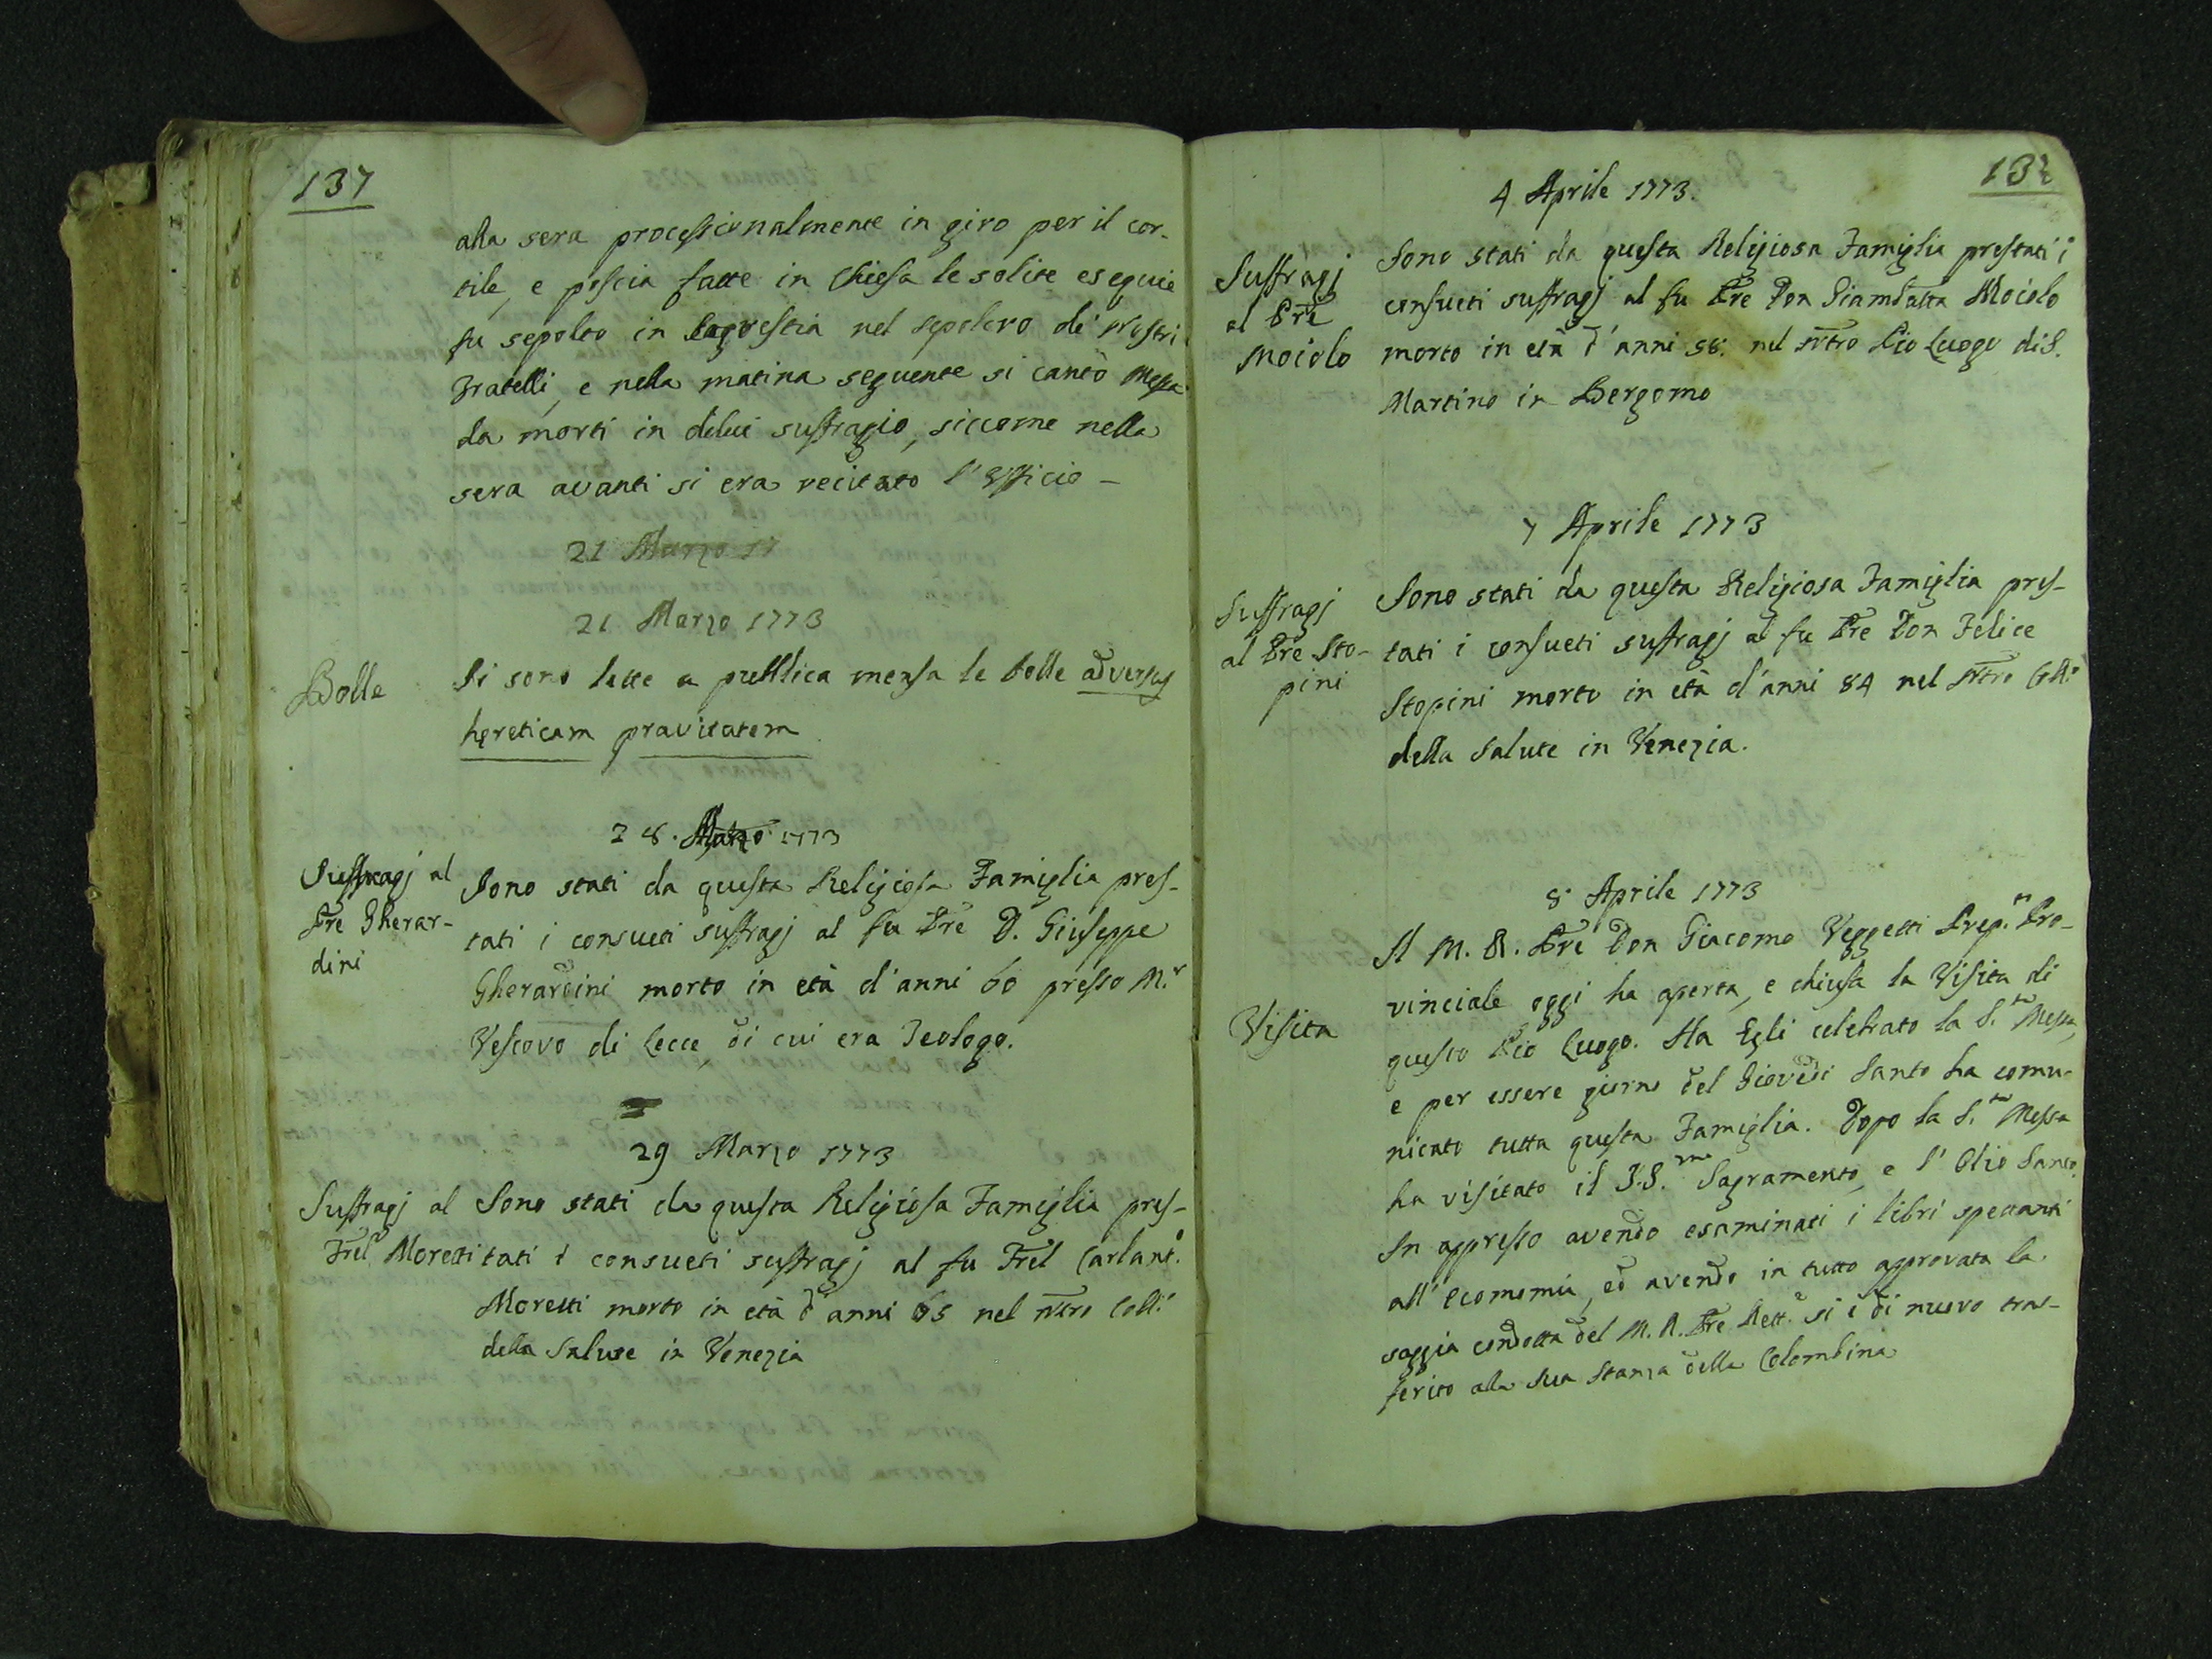 137
alla sera processionalmente in giro per il cor-
tile, e poscia fatte in Chiesa le solite esequie
fu sepolto in Sagrestia nel sepolcro de' Nostri
Fratelli, e nella matina seguente si cantò Messa
da morti in di lui suffragio, siccome nella
sera avanti si era recitato l'Officio -
21 Marzo 17
21 Marzo 1773
Bolle
Si sono lette a pubblica mensa le bolle adversus
hęreticam pravitatem
28. Marzo 1773
Suffragj al
Pre Gherar-
dini
Sono stati da questa Religiosa Famiglia pres-
tati i consueti suffragj al fu Pre D. Giuseppe
Gherardini morto in età d'anni 60 presso M.r
Vescovo di Lecce, di cui era Teologo.
29 Marzo 1773
Suffragj al
Frel Moretti
Sono stati da questa Religiosa Famiglia pres-
tati i consueti suffragj al fu Frel Carlant.o
Moretti morto in età d'anni 65 nel ntro Coll.o
della Salute in Venezia
138
4 Aprile 1773.
Suffragj
al Pre
Moiolo
Sono stati da questa Religiosa Famiglia prestati i
consueti suffragj al fu Pre Don Giambatta Moiolo
morto in età d'anni 58. nel ntro Pio Luogo di S.
Martino in Bergomo
7 Aprile 1773
Suffragj
al Pre Sto-
pini
Sono stati da questa Religiosa Famiglia pres-
tati i consueti suffragj al fu Pre Don Felice
Stopini morto in età d'anni 84 nel ntro Coll.o
della Salute in Venezia.
8 Aprile 1773
Visita
Il M. R. Pre Don Giacomo Veggetti Prep.to Pro-
vinciale oggi ha aperta, e chiusa la Visita di
questo Pio Luogo. Ha Egli celebrato la S.ta Messa,
e per essere giorno del Giovedi Santo ha comu-
nicato tutta questa Famiglia. Dopo la S.ta Messa
ha visitato il S.S.mo Sagramento, e l'Olio Santo.
In appresso avendo esaminati i libri spettanti
all'economia, ed avendo in tutto approvata la
saggia condotta del M. R. Pre Rett.e si è di nuovo tras-
ferito alla sua Stanza della Colombina